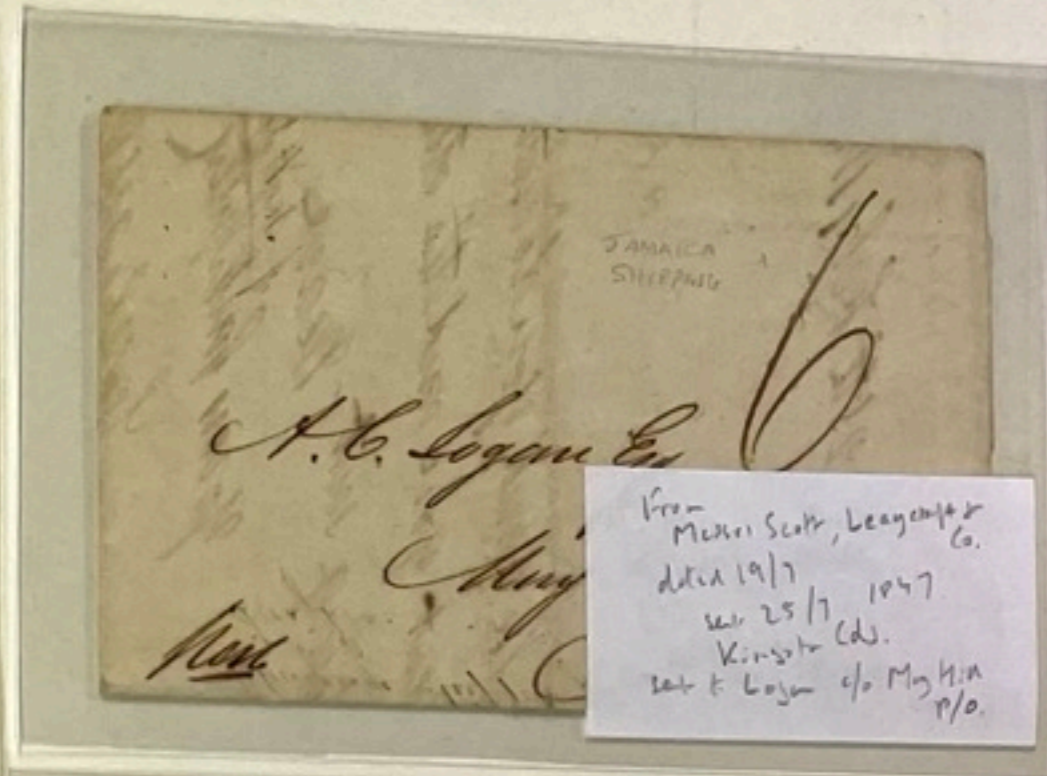 JAMAICA
SHIPPING
6
A. C. Logan Esq
May
From
Messrs Scott, & Co.
dated 19/7
sent 25/7 1847
Kingston Cds.
sent to Logan c/o May Hill
P/O.